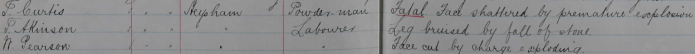 F. Curtis " " Keybham Powder-man Fatal. Face shattered by premature explosion
F. Atkinson " " " Labourer Leg bruised by fall of stone
W. Pearson " " " " Face cut by charge exploding.